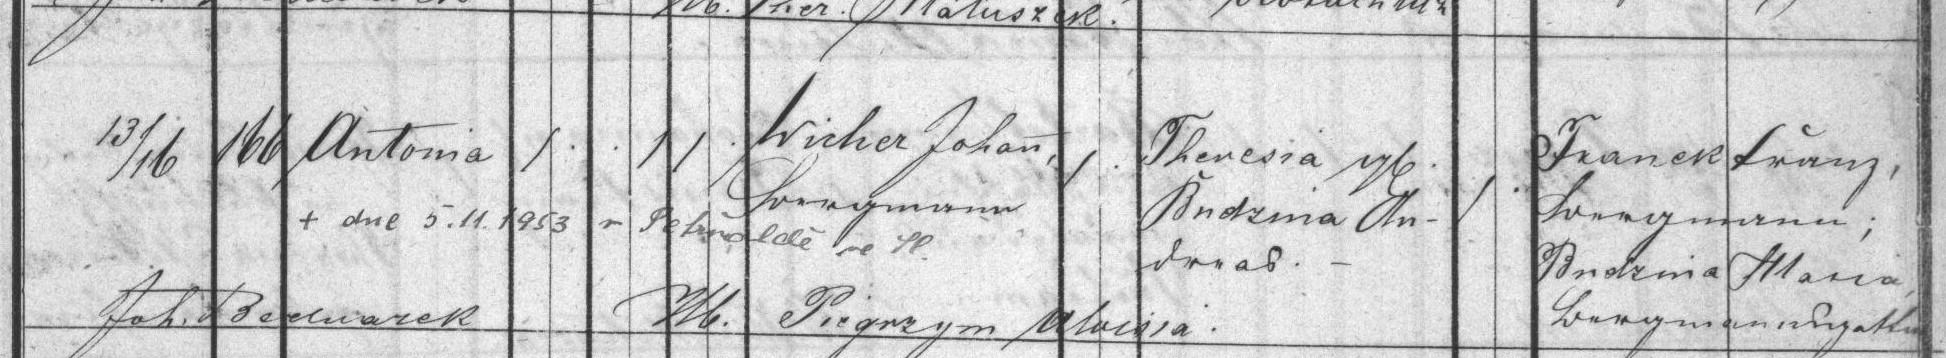 Hb. Ther. Matuszek.
13/16 166 Antonia 1. 1 1. Wicher Johan̅, 1. Theresia gb. 1. Franek Franz,
Bergmann Budzina An- Bergmann;
+ dne 5.11.1953 v Petřvaldě ve Sl.
dreas. – Budzina Maria,
Joh. Bednarek Hb. Piegrzym Aloisia. Bergmannsgattin